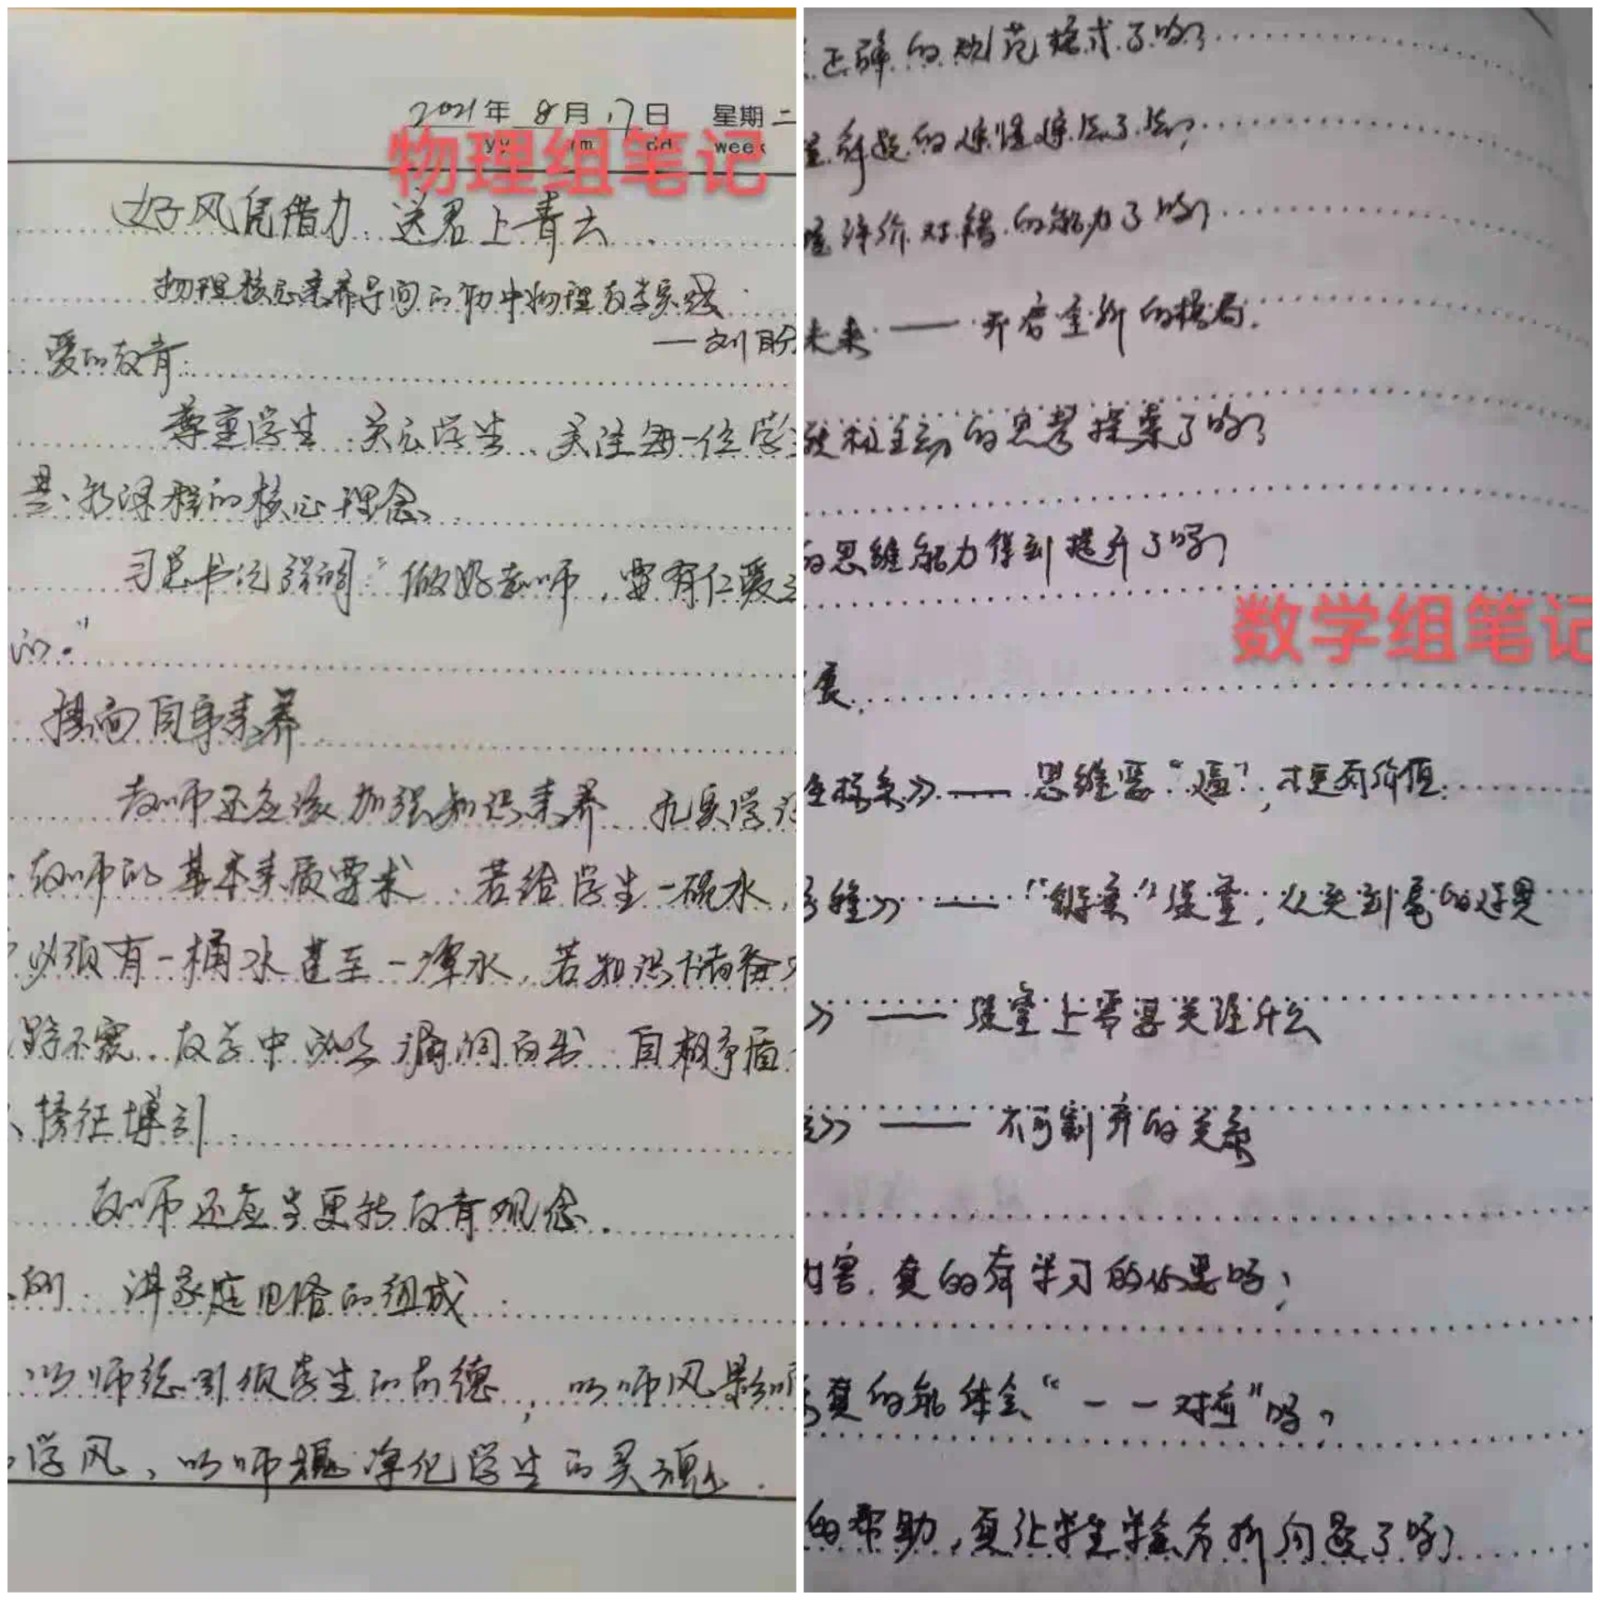 2021年 8月 17日 星期二
yy mm dd week
物理组笔记
好风凭借力、送君上青云
物理核心素养导向的初中物理教学实践
—刘盼
爱的教育
尊重学生、关心学生、关注每一位学
是新课程的核心理念
习总书记强调"做好老师,要有仁爱之
的."
提高自身素养
教师还应该加强知识素养 扎实学识
教师的基本素质要求、若给学生一碗水,
必须有一桶水甚至一潭水,若知识储备
踏不实、教学中就必漏洞百出、自相矛盾
旁征博引
教师还应当更新教育观念.
例、讲家庭电路的组成
以师德引领学生的品德,以师风影响
学风、以师魂净化学生的灵魂.
正确的规范格式了吗?
解题的
评价对错的能力了吗?
未来——开启重新的格局.
积极主动的思考探索了吗?
的思维能力得到提升了吗?
数学组笔记
展.
坐标系》——思维要"逼",才更有价值.
》——课堂,从头到尾的
》——课堂上需要关注什么
》——不可割弃的关系
内容,真的有学习的必要吗;
真的能体会"一一对应"吗?
的帮助,真让学生学会分析问题了吗?